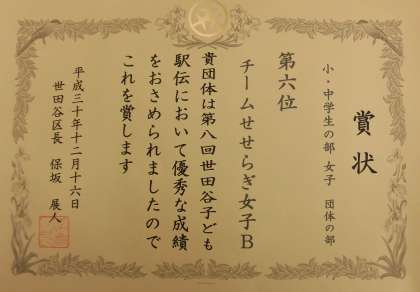 賞状
小・中学生の部 女子 団体の部
第六位
チームせせらぎ女子B
貴団体は第八回世田谷子ども
駅伝において優秀な成績
をおさめられましたので
これを賞します
平成三十年十二月十六日
世田谷区長 保坂 展人